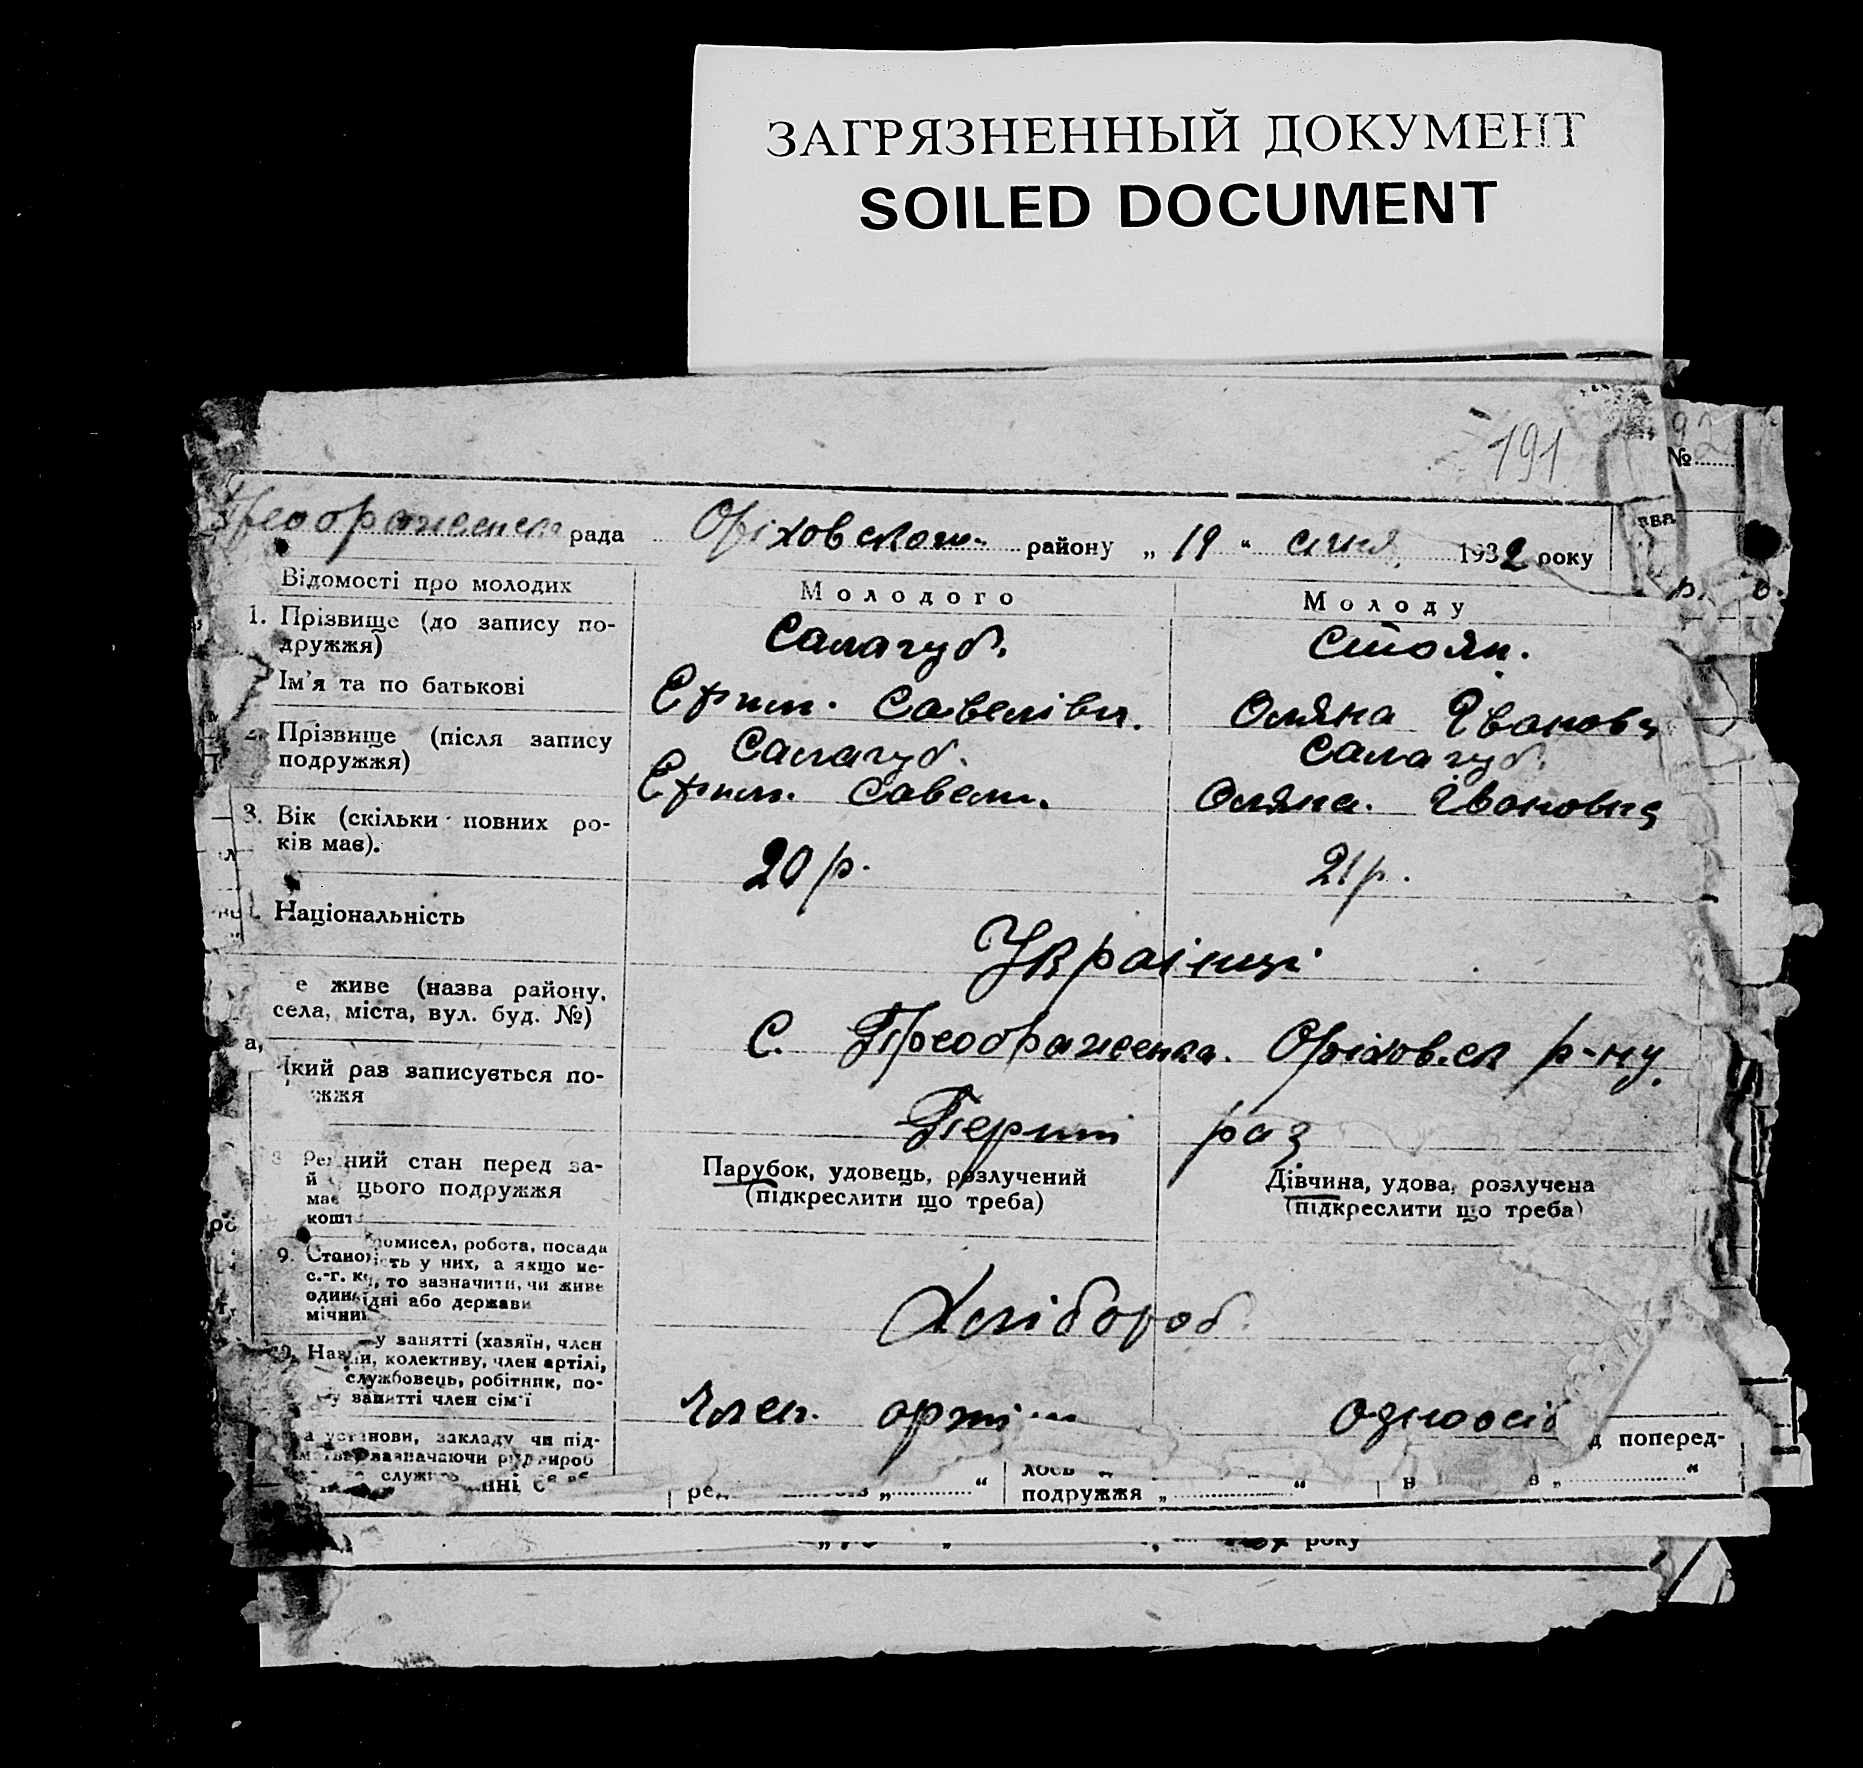 ЗАГРЯЗНЕННЫЙ ДОКУМЕНТ
SOILED DOCUMENT
191
92
№
Преображенська рада Оріховского району „ 19 “ січня 1932 року
Відомості про молодих
Молодого
Молоду
1. Прізвище (до запису по-
дружжя)
Салагуб.
Стоян.
Ім'я та по батькові
Єфим. Савелівич.
Оляна Івановна
2. Прізвище (після запису
подружжя)
Салагуб.
Салагуб.
Єфим. Савели.
Оляна. Івановна
3. Вік (скільки повних ро-
ків має).
20 р.
21 р.
Національність
Українці
е живе (назва району,
села, міста, вул. буд. №)
С. Преображенка. Оріховск р-ну.
кий раз записується по-
жжя
Перший раз
ний стан перед за-
цього подружжя
Парубок, удовець, розлучений
(підкреслити що треба)
Дівчина, удова, розлучена
(підкреслити що треба)
має
кошт
9. Станов
омисел, робота, посада
ість у них, а якщо не-
то зазначити, чи живе
ідні або держави
Хлібороб.
у занятті (хазяїн, член
и, колективу, член артілі,
службовець, робітник, по-
у занятті член сім'ї
Член. артіли
одноосіб
а установи, закладу чи під-
зазначаючи
д поперед-
подружжя „ “
року